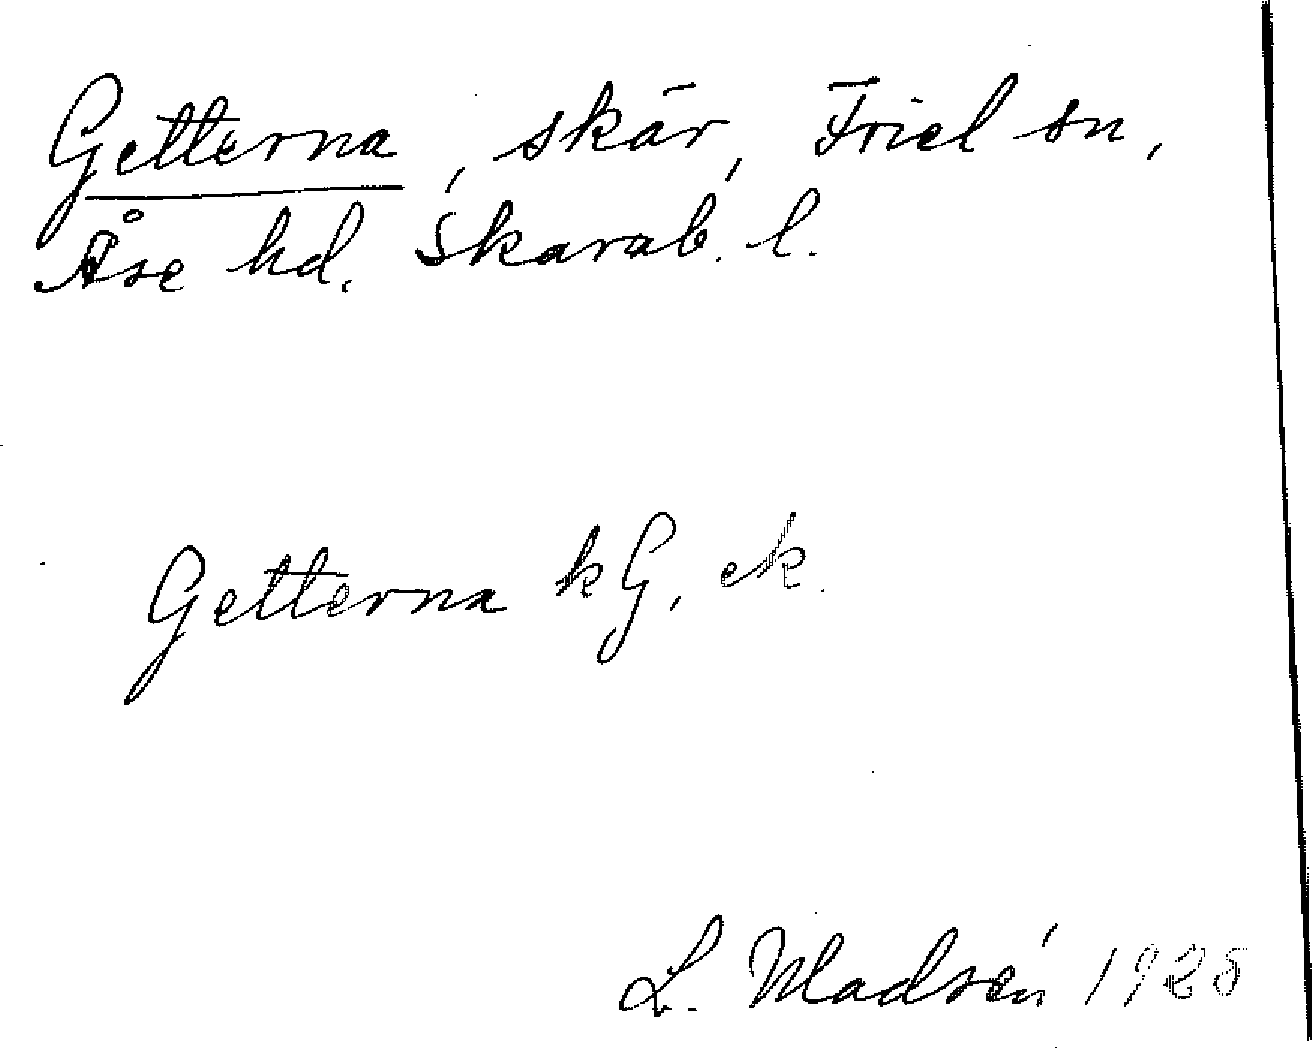 Getterna, skär, Friel sn,
Åse hd. Skarab. l.
Getterna kG, ek.
L. Madsén 1925